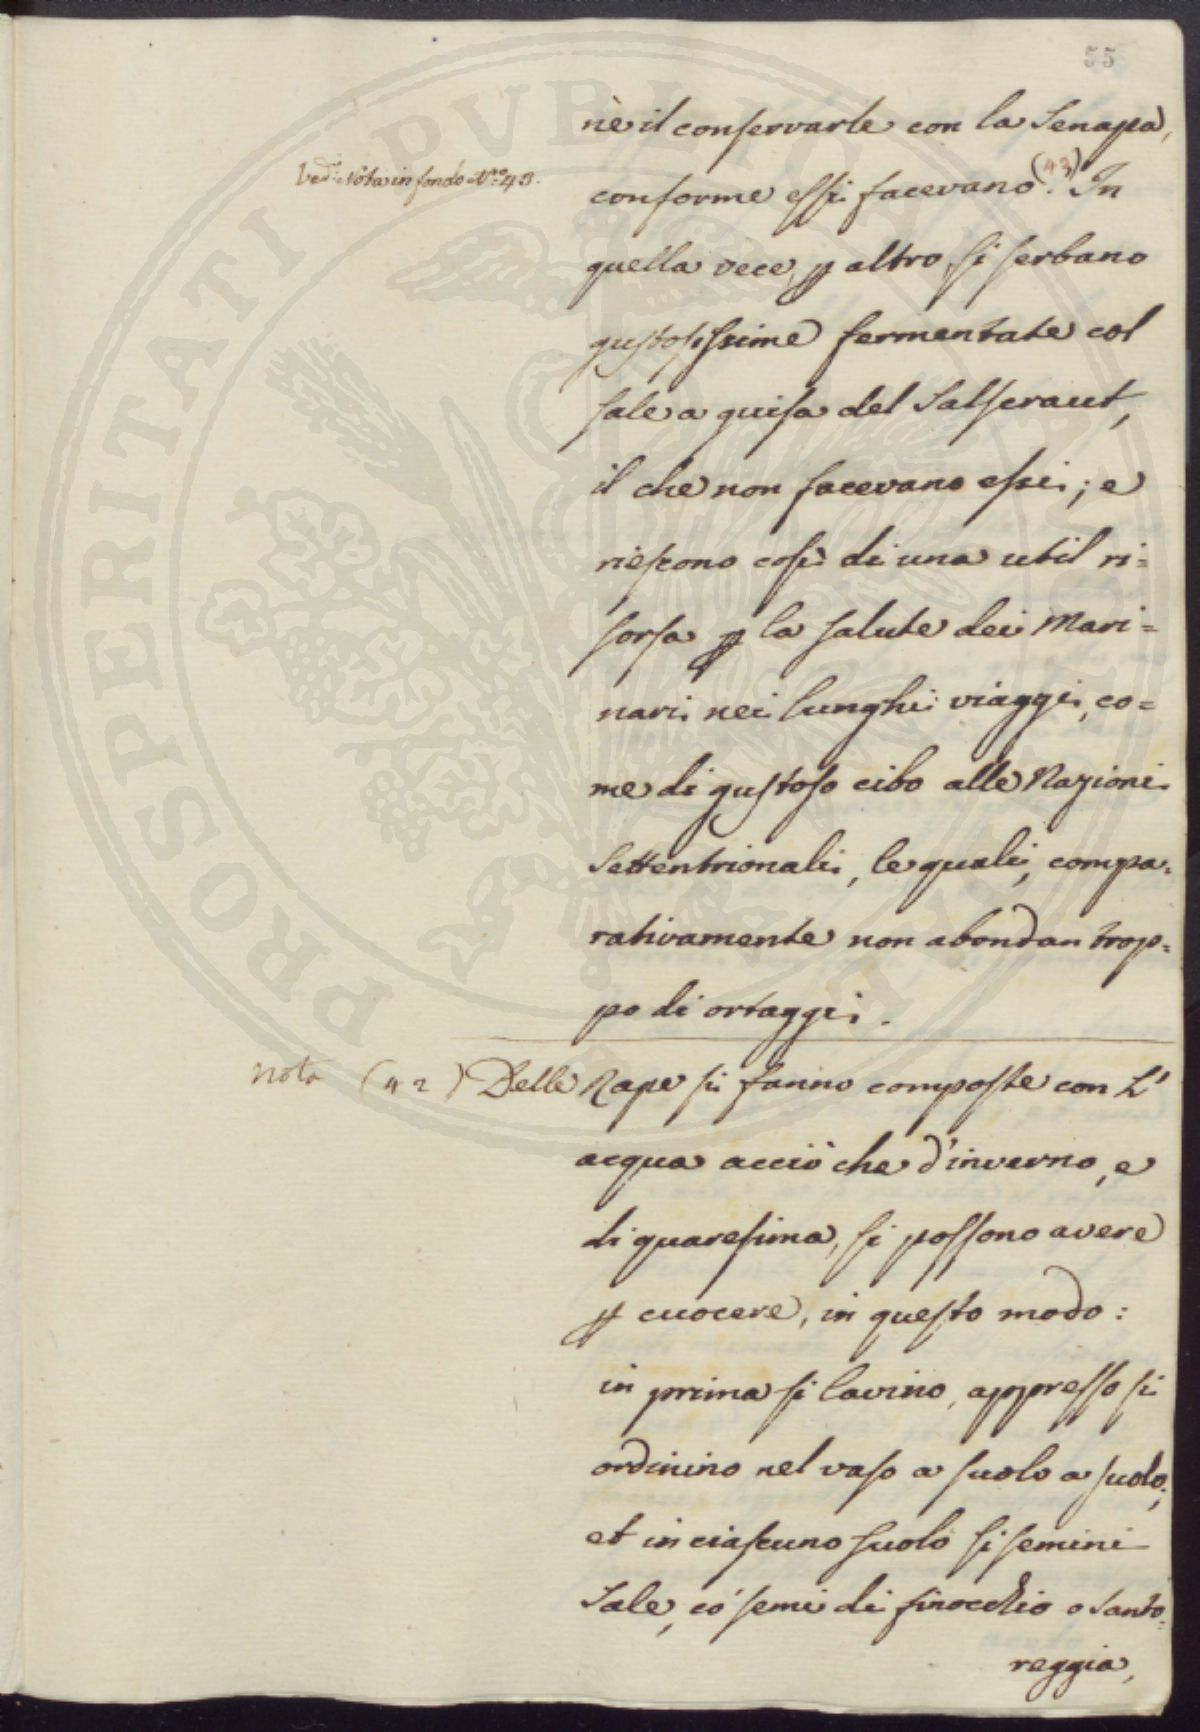 55
nè il conservarle con la Senapa,
Ved: Nota in fondo N.º 43.
conforme essi facevano (43). In
quella vece, p altro, si serbano
gustosissime fermentate col
sale a guisa del Salscraut,
il che non facevano essi; e
riescono così di una util ri=
sorsa p la salute dei Mari=
nari nei lunghi viaggi, co=
me di gustoso cibo alle Nazioni
Settentrionali, le quali, compa=
rativamente non abondan trop=
po di ortaggi.
Nota (42) Delle Rape si fanno composte con l'
acqua acciò che d'inverno, e
di quaresima, si possono avere
p cuocere, in questo modo:
in prima si lavino, appresso si
ordinino nel vaso a suolo a suolo;
et in ciascuno suolo si semini
Sale, co' semi di finocchio o Santo=
reggia,
PROSPERITATI PVBLICAE AVGENDAE